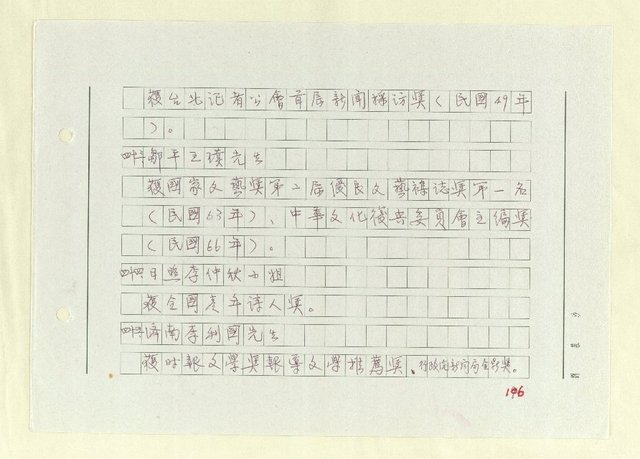 獲台北記者公會首屆新聞採訪獎(民國49年
)。
鄒平王璞先生
獲國家文藝獎第二屆優良文藝雜誌獎第一名
(民國63年)、中華文化復興委員會主編獎
(民國66年)。
日照李仲秋小姐
獲全國青年詩人獎。
濟南李利國先生
獲时報文學獎報導文學推薦獎、行政院新聞局金鼎獎。
196